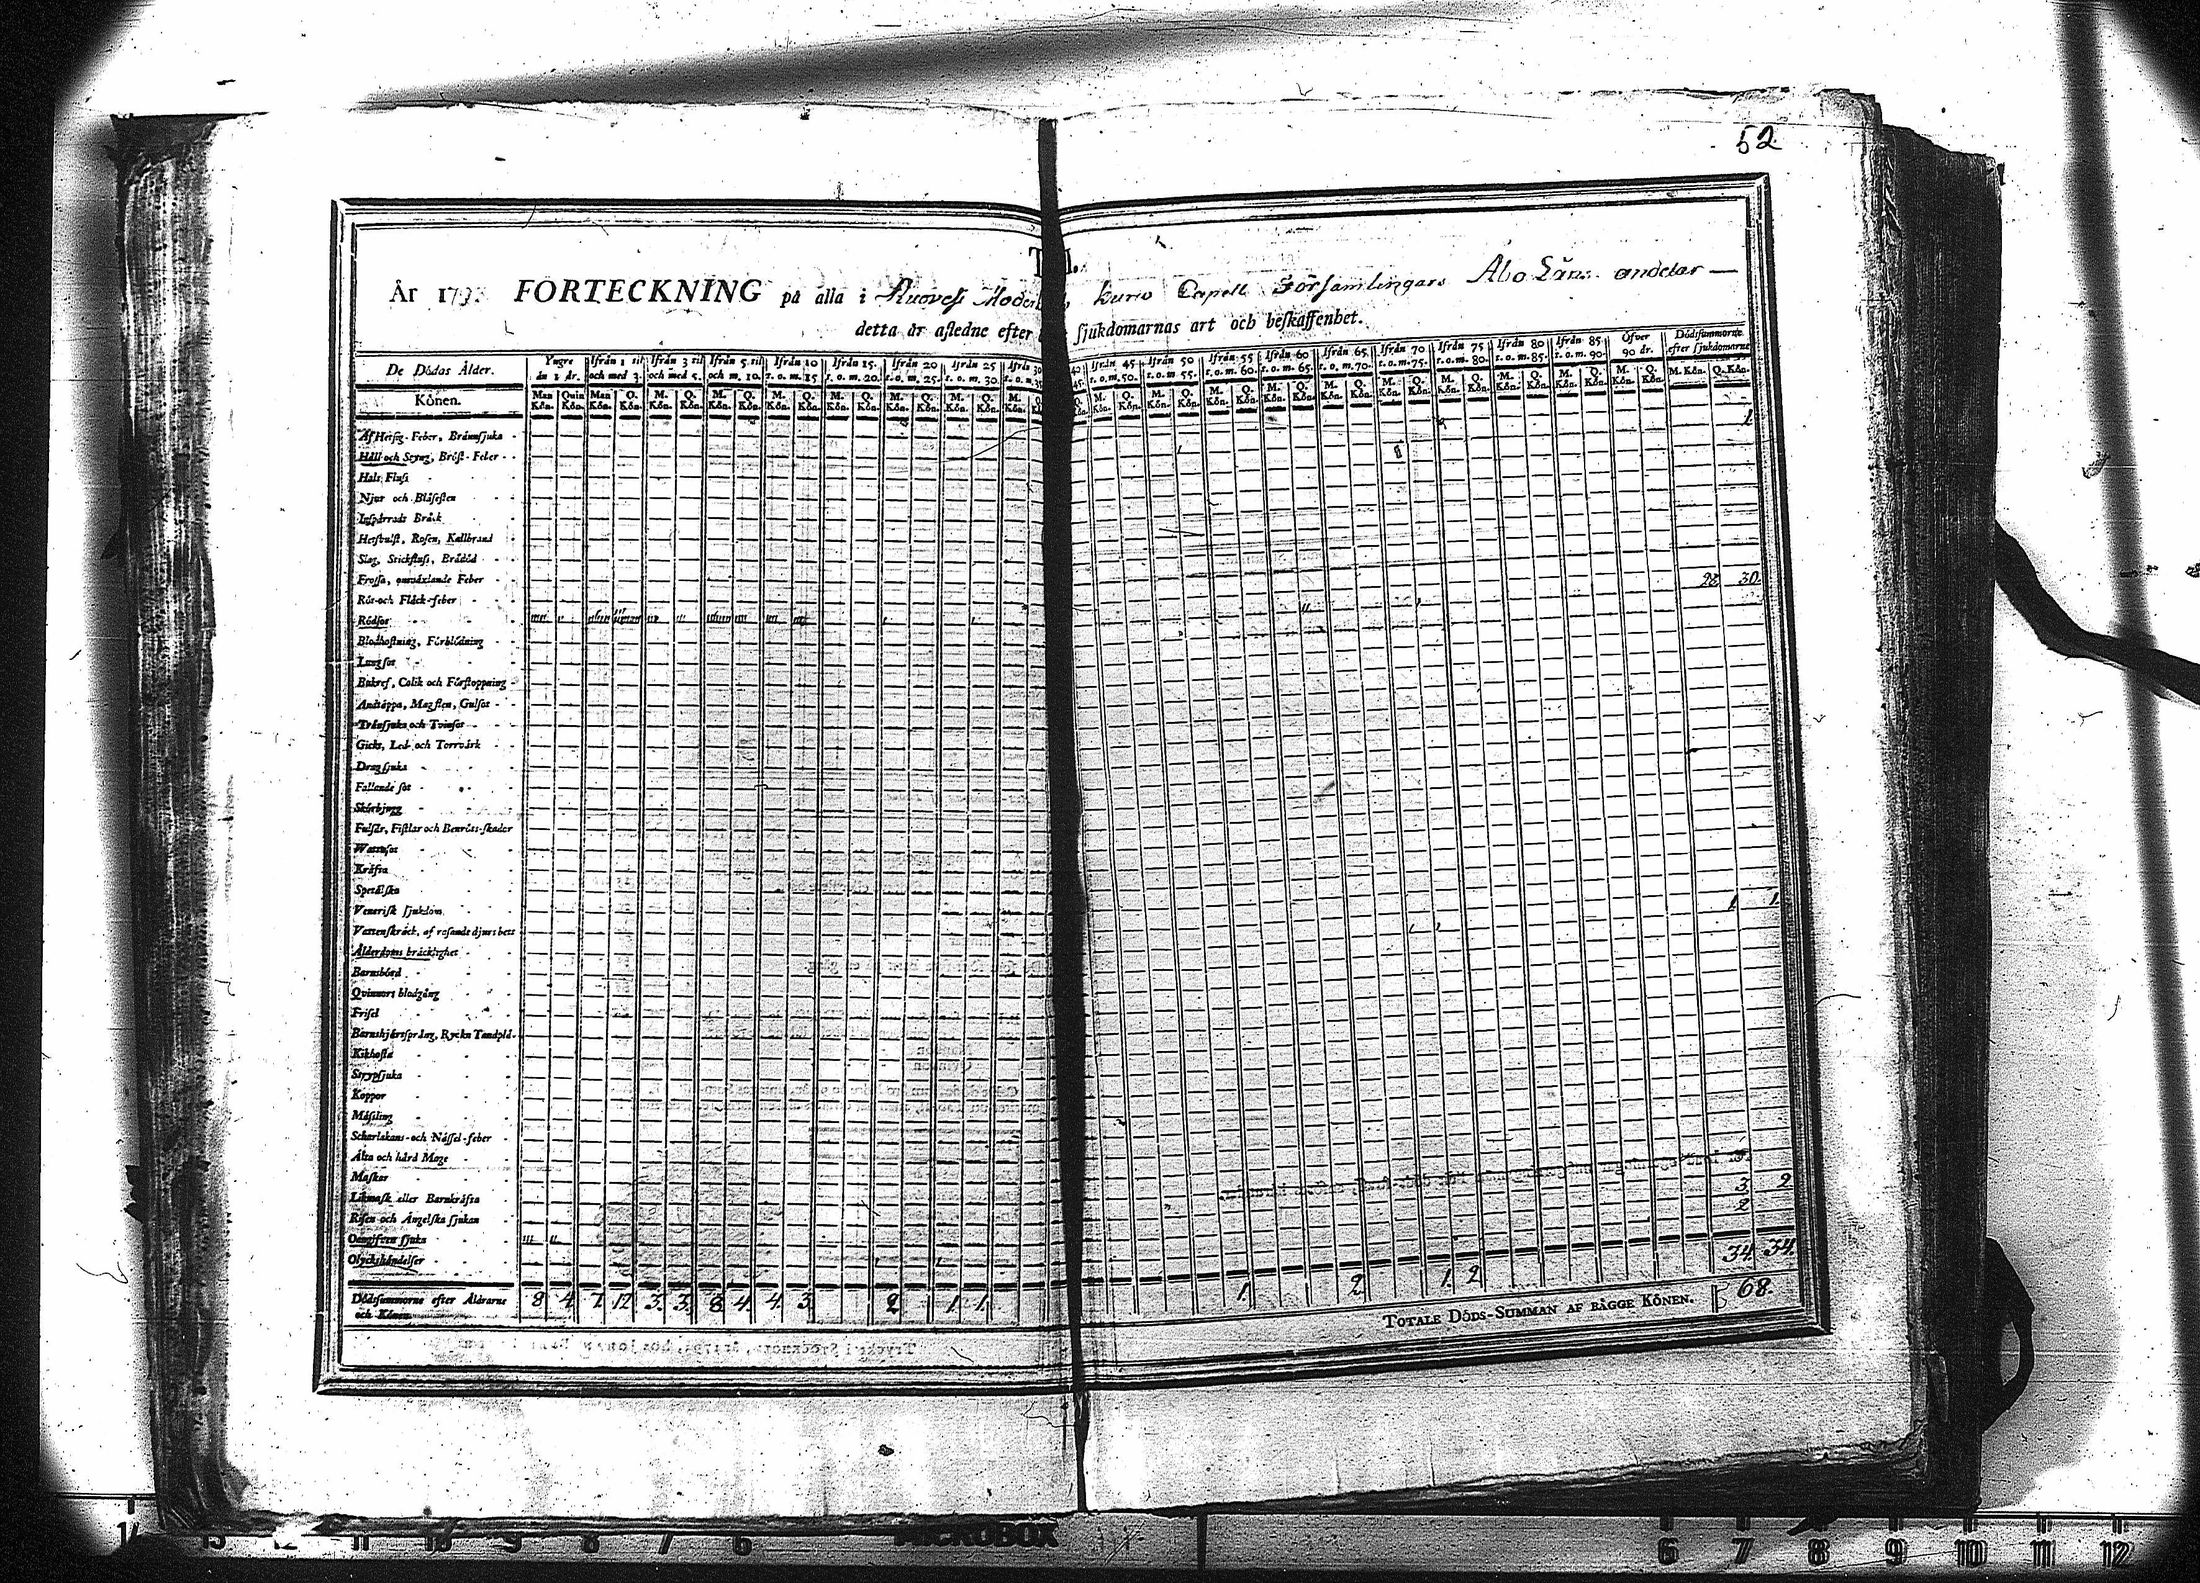 52
År 179 FÖRTECKNING på alla i Ruovesi Moder Kuru Capell Församlingars Åbo Läns andelar —
detta år afledne efter sjukdomarnas art och beskaffenhet.
De Dödas Ålder. Yngre än 1 år. Ifrån 1 til och med 3. Ifrån 3 til och med 5. Ifrån 5 til och m. 10. Ifrån 10 t. o. m. 15 Ifrån 15. t. o. m. 20. Ifrån 20 t. o. m. 25. Ifrån 25 t. o. m. 30. Ifrån 30 t. o. m. 35 40 45. Ifrån 45 t. o. m. 50. Ifrån 50 t. o. m. 55. Ifrån 55 t. o. m. 60. Ifrån 60 t. o. m. 65. Ifrån 65 t. o. m. 70. Ifrån 70 t. o. m. 75. Ifrån 75 t. o. m. 80. Ifrån 80 t. o. m. 85. Ifrån 85 t. o. m. 90. Öfver 90 år. Dödssummorne efter sjukdomarne
Könen. Man Kön. Quin Kön. Man Kön. Q. Kön. M. Kön. Q. Kön. M. Kön. Q. Kön. M. Kön. Q. Kön. M. Kön. Q. Kön. M. Kön. Q. Kön. M. Kön. Q. Kön. M. Kön. M. Kön. Q. Kön. M. Kön. Q. Kön. M. Kön. Q. Kön. M. Kön. Q. Kön. M. Kön. Q. Kön. M. Kön. Q. Kön. M. Kön. Q. Kön. M. Kön. Q. Kön. M. Kön. Q. Kön. M. Kön. Q. Kön. M. Kön. Q. Kön.
Af Hetsig-Feber, Brännsjuka 1
Håll och Styng, Bröst-Feber
Hals Fluss
Njur och Blåsesten
Inspärrads Bråck
Hetsbulst, Rosen, Kallbrand
Slag, Stickfluss, Brådöd
Frossa, omväxlande Feber
Röt-och Fläck-feber
Rödsot 28 30
Blodhostning, Förblödning
Lungsot
Bukref, Colik och Förstoppning
Andtäppa, Magsten, Gulsot
Trånsjuka och Tvinsot
Gickt, Led- och Torrvärk
Dragsjuka
Fallande sot
Skörbjugg
Fulsår, Fistlar och Benröts-skador
Wattusot
Kräfta
Spetälska
Venerisk sjukdom
Vattenskräck, af rasande djurs bett
Ålderdoms bräcklighet 1 1
Barnsbörd
Qvinnors blodgång
Frisel
Barnshjärtsprång, Ryckn Tandplå.
Kikhosta
Strypsjuka
Koppor
Mässling
Scharlakans- och Nässel-feber
Älta och hård Mage
Maskar
Likmask eller Barnkräfta
Risen och Ängelska sjukan
Oangifven sjuka 3 2
Olyckshändelser 2
34 34
Dödssummorne efter Åldrarne och Könen 8 4 7. 12 3. 3. 8 4. 4. 3. 2 1 1. 1. 2 1. 2
TOTALE DÖDS-SUMMAN AF BÅGGE KÖNEN. 68.
MICROBOX
13 12 11 10 9 8 7 6
6 7 8 9 10 11 12